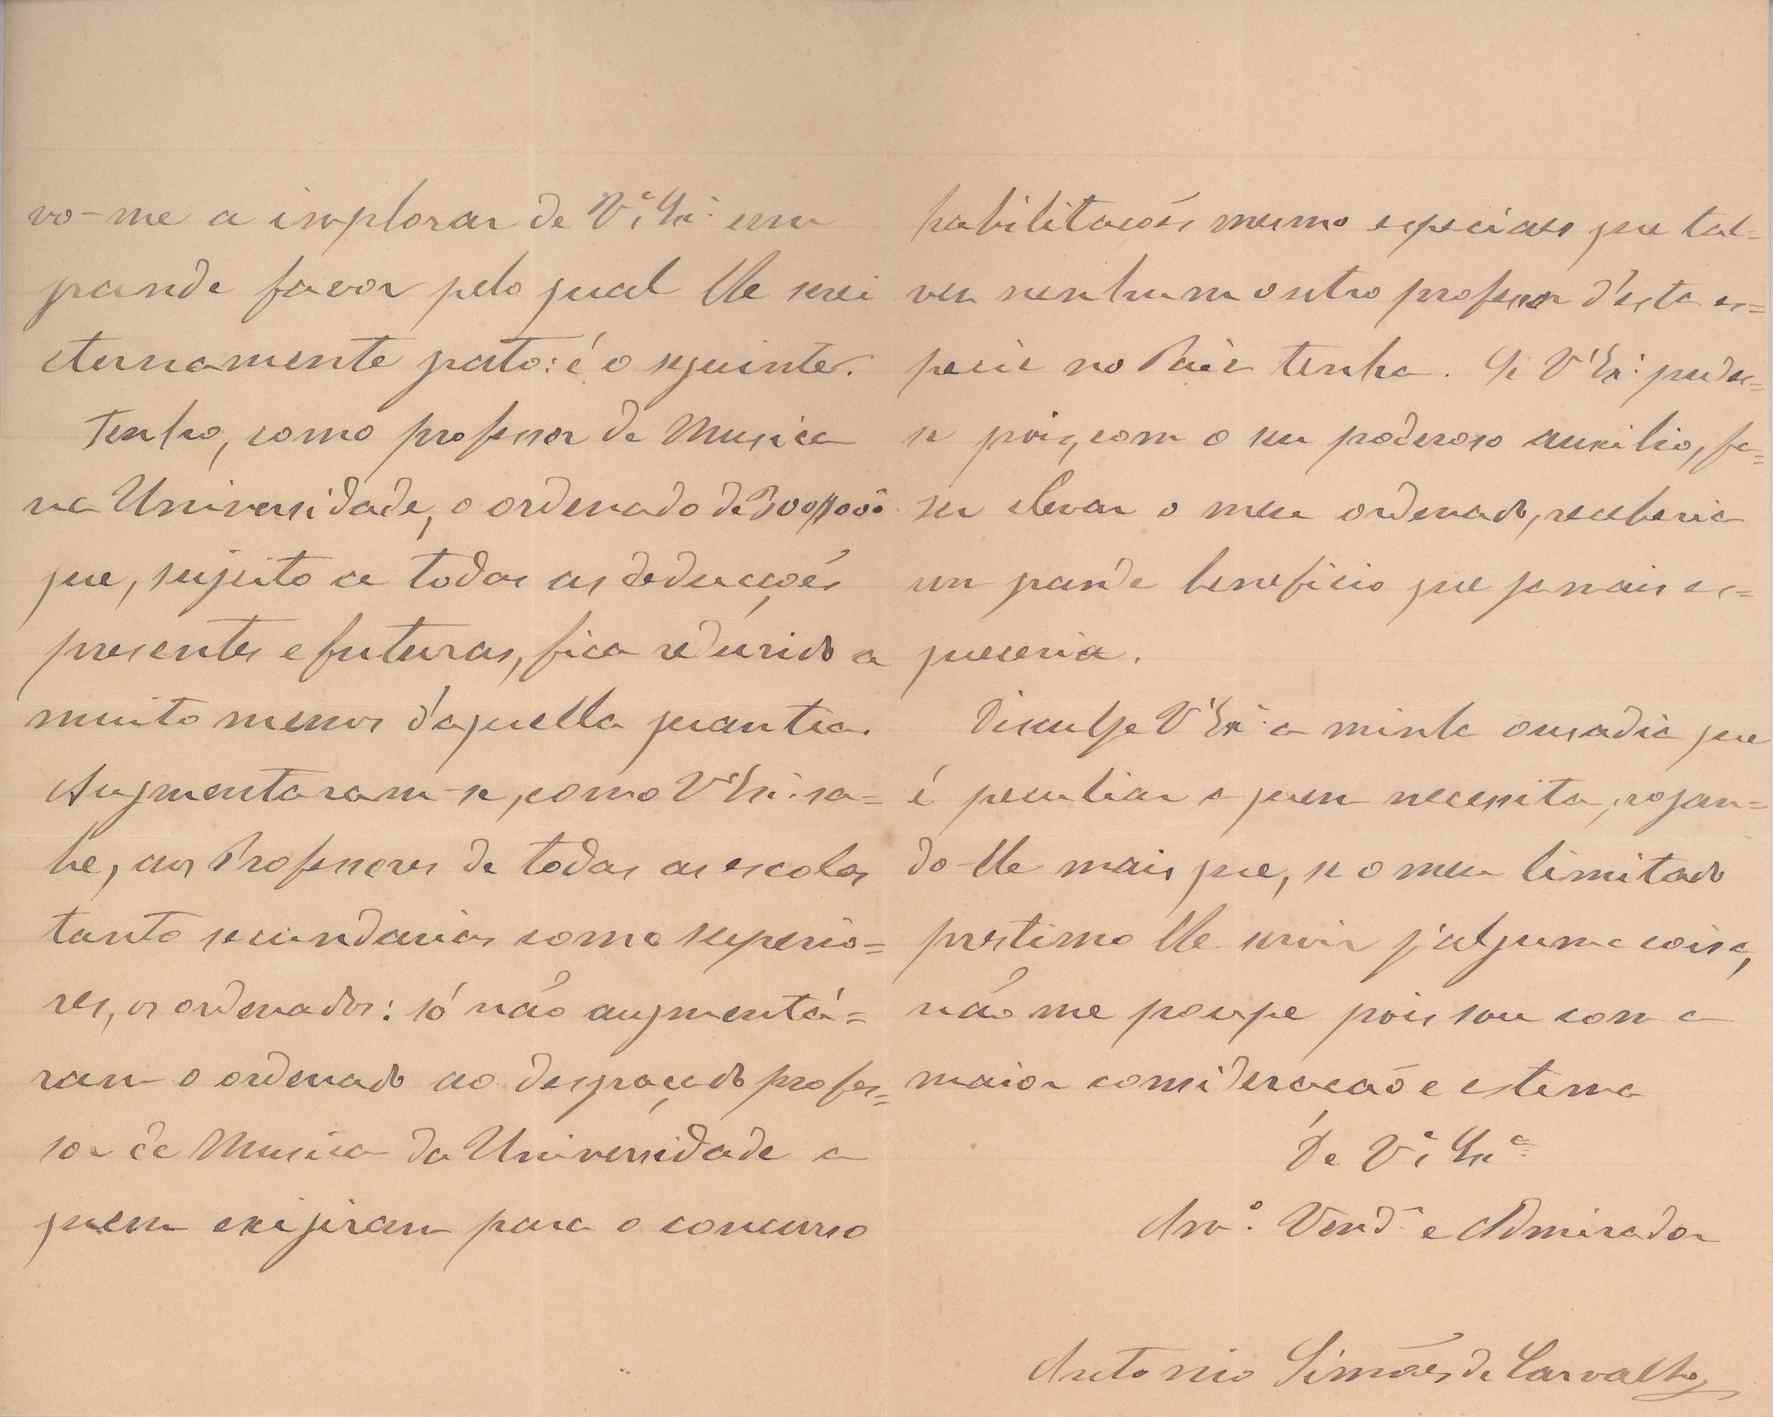 vo-me a implorar de Vª Exª um
grande favor pelo qual lhe serei
eternamente grato: é o seguinte.
Tenho, como professor de Musica
na Universidade, o ordenado de 300$000
que, sujeito a todas as deducções
presentes e futuras, fica reduzido a
muito menos d'aquella quantia.
Augmentaram-se, como V Exª sa=
be, aos Professores de todas as escolas
tanto secundarias como superio=
res, os ordenados: só não augmentá=
ram o ordenado ao desgraçado profes=
sor de Musica da Universidade a
quem exigiram para o concurso
habilitações mesmo especiaes que tal-
vez nenhum outro professor d'esta es=
pecie no Paiz tenha. Se V Exª podes=
se pois, com o seu poderoso auxilio, fa=
zer elevar o meu ordenado, receberia
um grande beneficio que jamais es=
queceria.
Disculpe V Exª a minha ousadia que
é peculiar a quem necessita, rogan=
do-lhe mais que, se o meu limitado
prestimo lhe servir p'alguma coisa,
não me poupe pois sou com a
maior consideração e estima
De Vª Exª
Amº. Venºr e Admirador
Antonio Simões de Carvalho